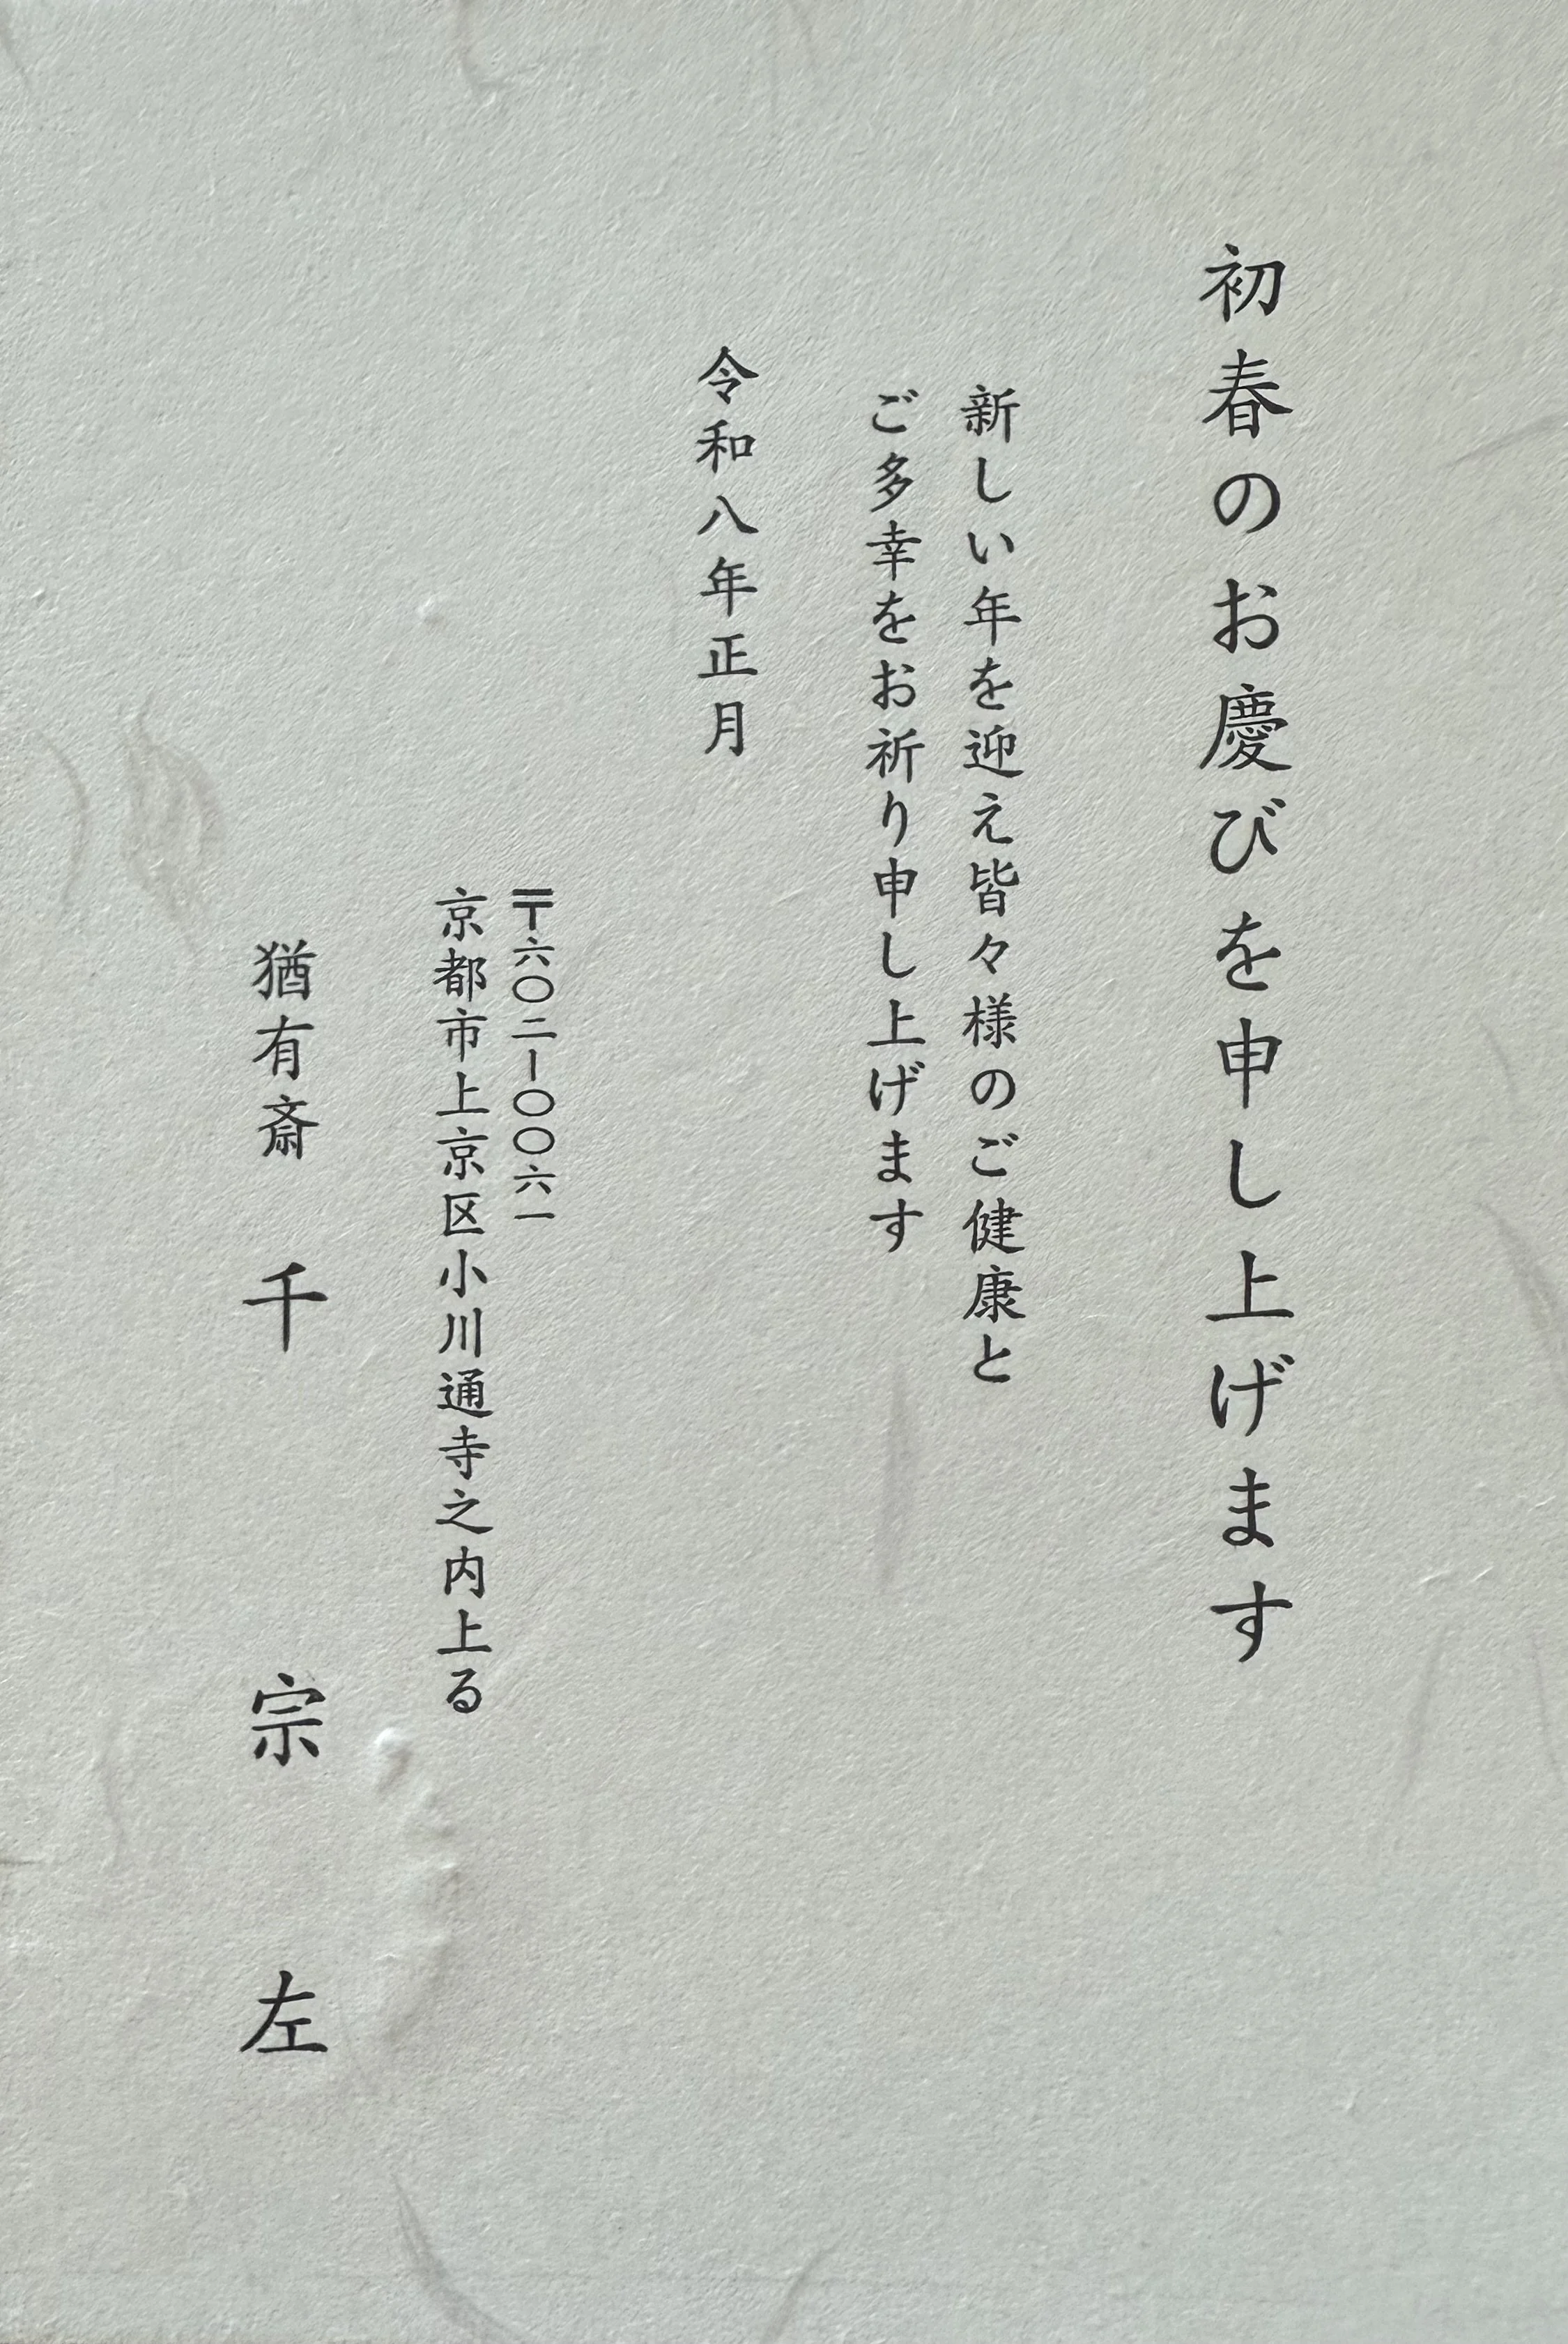 初春のお慶びを申し上げます
新しい年を迎え皆々様のご健康と
ご多幸をお祈り申し上げます
令和八年正月
〒六〇二ー〇〇六一
京都市上京区小川通寺之内上る
猶有斎 千 宗 左